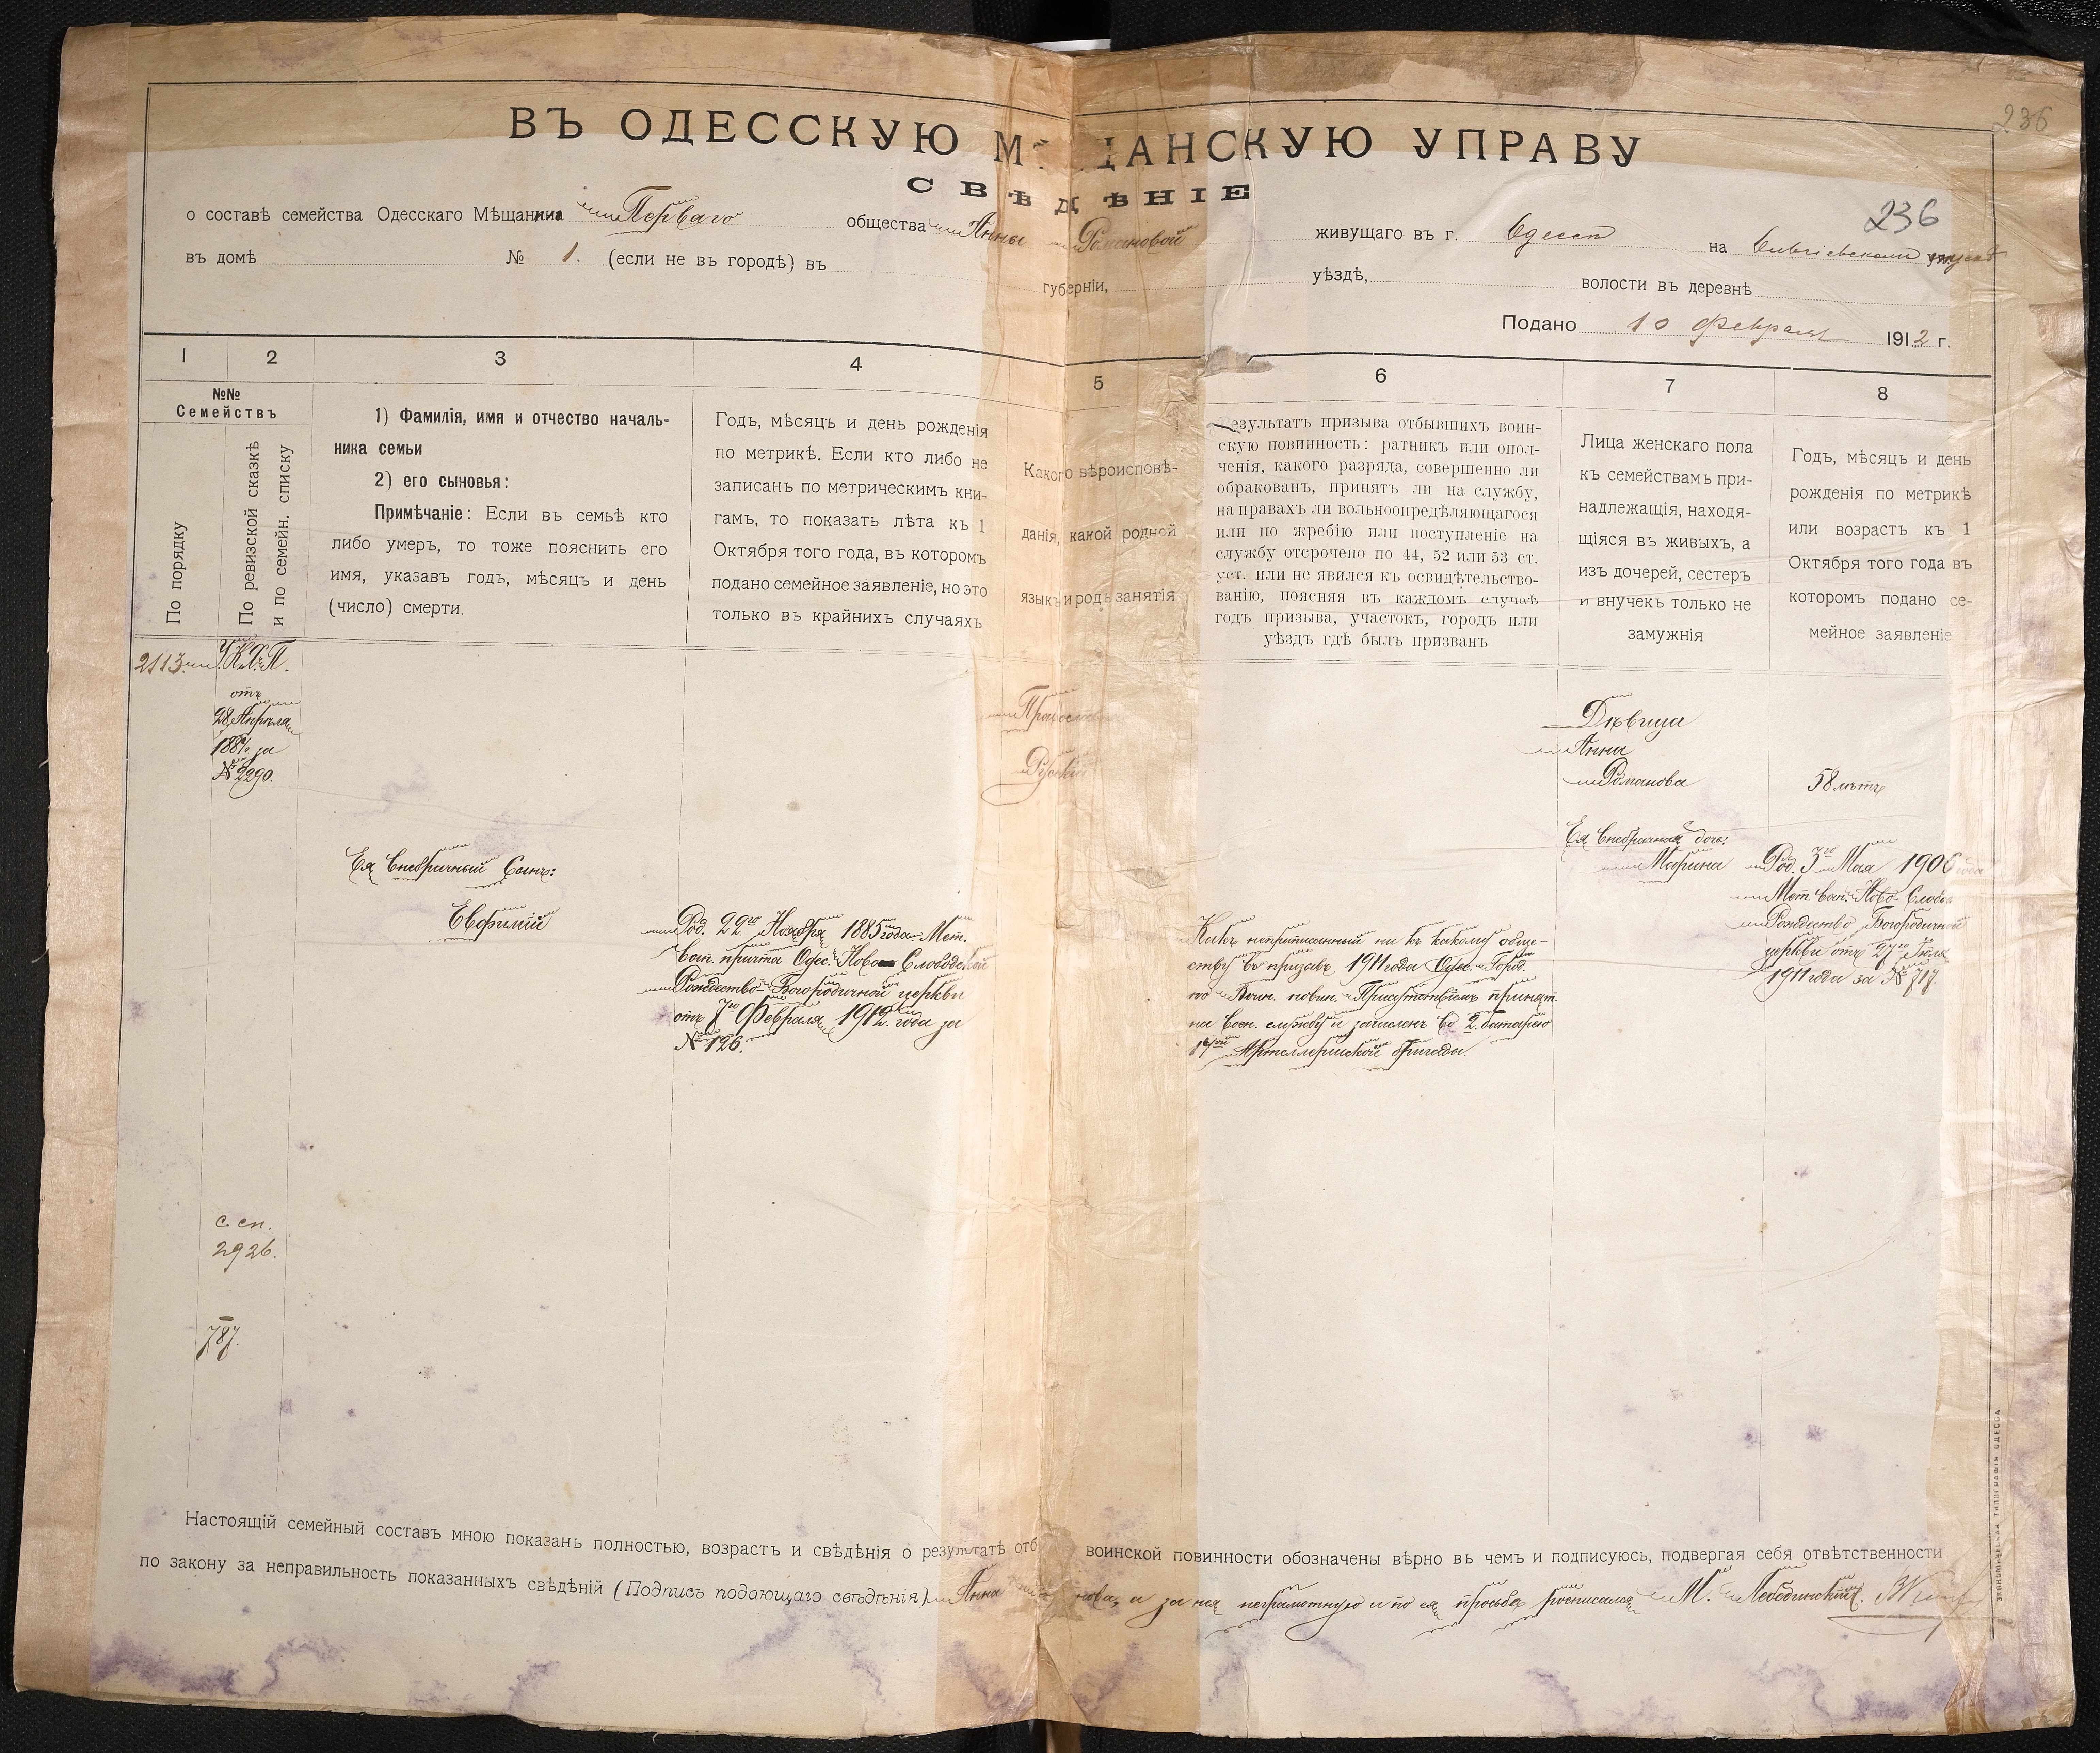 236
ВЪ ОДЕССКУЮ М ЩАНСКУЮ УПРАВУ
СВѢДѢНІЕ
236
о составѣ семейства Одесскаго Мѣщанина Перваго общества Анны Романовой живущаго въ г. Одессѣ на
въ домѣ № 1. (если не въ городѣ) въ губерніи, уѣздѣ, волости въ деревнѣ
Подано 10 Февраля 1912 г.
1
2
3
4
5
6
7
8
№№
Семействъ
По порядку
По ревизской сказкѣ
и по семейн. списку
1) Фамилія, имя и отчество началь-
ника семьи
2) его сыновья:
Примѣчаніе: Если въ семьѣ кто
либо умеръ, то тоже пояснить его
имя, указавъ годъ, мѣсяцъ и день
(число) смерти.
Годъ, мѣсяцъ и день рожденія
по метрикѣ. Если кто либо не
записанъ по метрическимъ кни-
гамъ, то показать лѣта къ 1
Октября того года, въ которомъ
подано семейное заявленіе, но это
только въ крайнихъ случаяхъ
Какого вѣроисповѣ-
данія, какой родной
языкъ и родъ занятія
Результатъ призыва отбывшихъ воин-
скую повинность: ратникъ или опол-
ченія, какого разряда, совершенно ли
обракованъ, принятъ ли на службу,
на правахъ ли вольноопредѣляющагося
или по жребію или поступленіе на
службу отсрочено по 44, 52 или 53 ст.
уст. или не явился къ освидѣтельство-
ванію, поясняя въ каждомъ случаѣ
годъ призыва, участокъ, городъ или
уѣздъ гдѣ былъ призванъ
Лица женскаго пола
къ семействамъ при-
надлежащія, находя-
щіяся въ живыхъ, а
изъ дочерей, сестеръ
и внучекъ только не
замужнія
Годъ, мѣсяцъ и день
рожденія по метрикѣ
или возрастъ къ 1
Октября того года въ
которомъ подано се-
мейное заявленіе
2113. У.К.Х.П.
отъ
28 Апрѣля
188 за
№ 2290.
Православн
Русскій
Дѣвица
Анна
Романова 58 лѣтъ
Ея внебрачный Сынъ:
Евфимій
Род. 22го Ноября 1885 года Мет.
Вып. причта Одес. Ново Слободской
Рождество-Богородичной церкви
отъ 7го Февраля 1912 года за
№ 126.
Какъ неприписанный ни къ какому обще-
ству въ призывъ 1911 года Одес. Город.
по Воин. повин. Присутствіемъ принят.
на воен. службу и зачисленъ во 2. батарею
Артиллерійской бригады.
Ея внебрачная дочь:
Марина
Род. Мая 1906 года
Мет. Вып. Ново-Слобод
Рождество Богородичной
церкви отъ 27го Іюля
1911 года за № 717.
с. сп.
2926.
787.
Настоящій семейный составъ мною показанъ полностью, возрастъ и свѣдѣнія о результатѣ отб воинской повинности обозначены вѣрно въ чемъ и подписуюсь, подвергая себя отвѣтственности
по закону за неправильность показанныхъ свѣдѣній (Подпись подающаго свѣдѣнія) Анна нова, а за нея неграмотную и по ея просьбѣ росписался М. Лебединскій.
ТИПОГРАФІЯ ОДЕССА